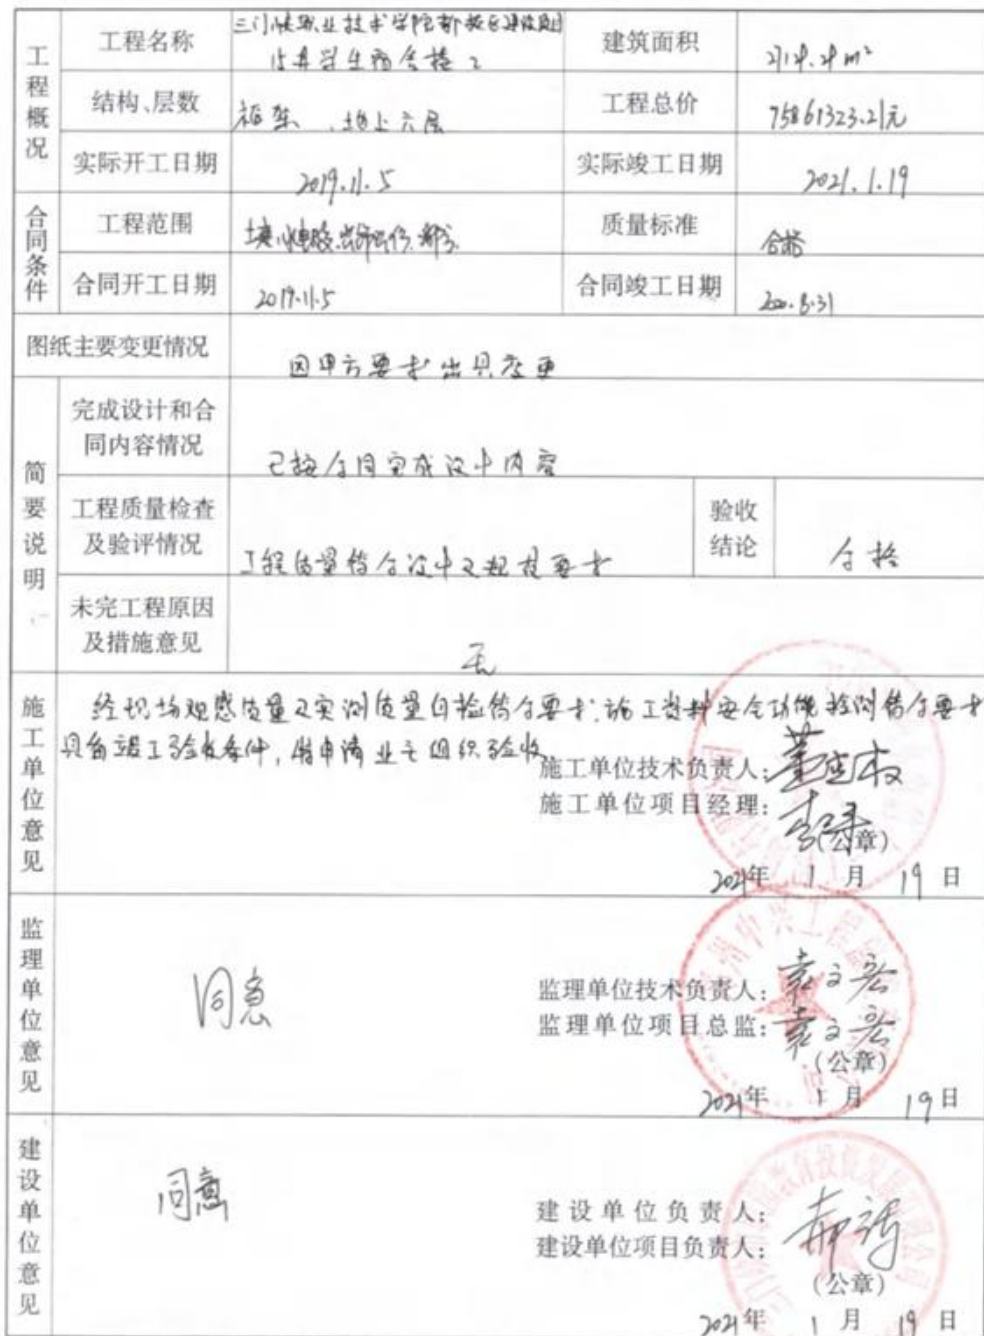 工程概况
工程名称
三门峡职业技术学院新校区建设项目
学生宿舍楼2
建筑面积
m²
结构、层数
框架、地上六层
工程总价
75861323.21元
实际开工日期
2019.11.5
实际竣工日期
2021.1.19
合同条件
工程范围
质量标准
合格
合同开工日期
2019.11.5
合同竣工日期
图纸主要变更情况
因甲方要求出具变更
简要说明
完成设计和合
同内容情况
已按合同完成设计内容
工程质量检查
及验评情况
工程质量符合设计及规范要求
验收
结论
合格
未完工程原因
及措施意见
无
施工单位意见
经现场观感质量及实测质量自检符合要求,施工资料安全功能检测符合要求
具备竣工验收条件,特申请业主组织验收
施工单位技术负责人:
施工单位项目经理:
(公章)
2021年 1月 19日
监理单位意见
同意
监理单位技术负责人:袁文宏
监理单位项目总监:袁文宏
(公章)
2021年 1月 19日
建设单位意见
同意
建设单位负责人:
建设单位项目负责人:
(公章)
2021年 1月 19日